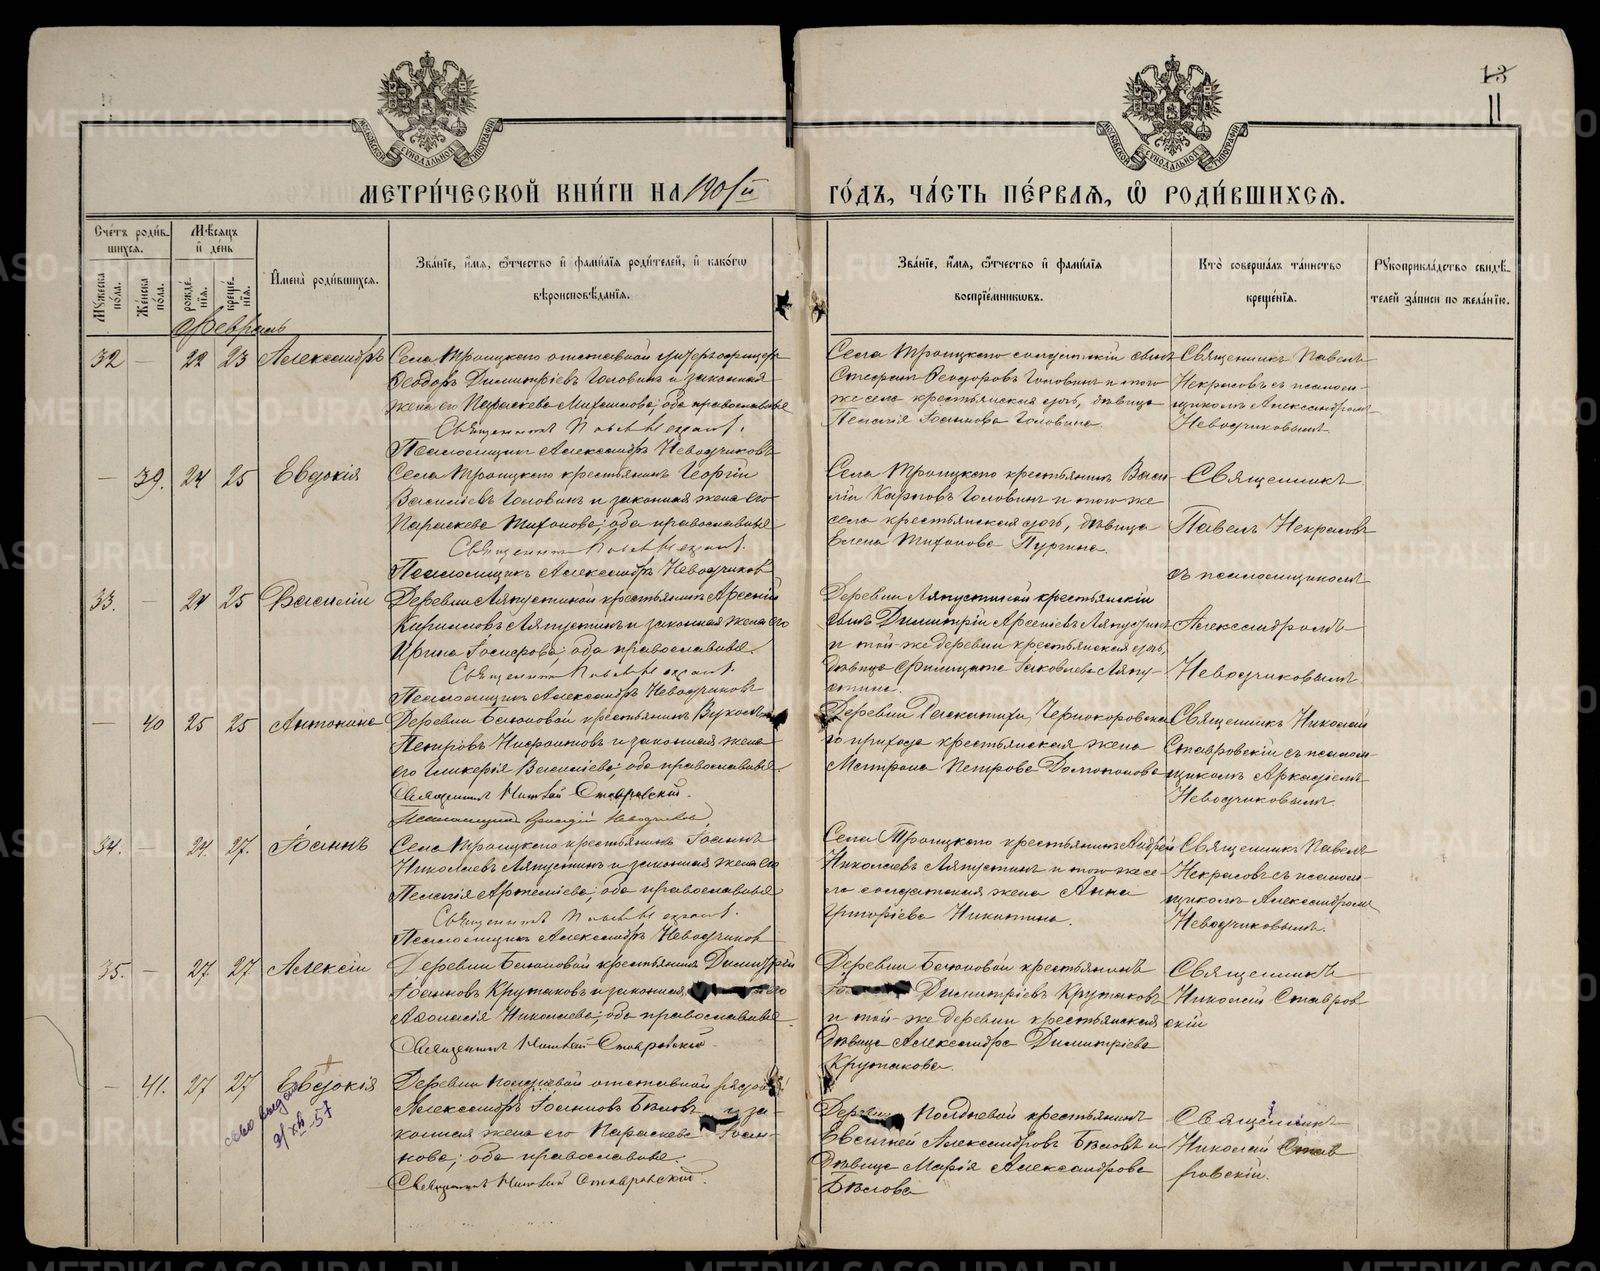 13
11
МОСКОВСКОЙ СѴНОДАЛЬНОЙ ТИПОГРАФІИ
МОСКОВСКОЙ СѴНОДАЛЬНОЙ ТИПОГРАФІИ
МЕТРИ́ЧЕСКОЙ КНИ́ГИ НА 1901й
ГО́ДЪ, ЧА́СТЬ ПЕ́РВАѦ, Ѡ҆ РОДИ́ВШИХСѦ.
Сче́тъ роди́в-
шихсѧ.
Мѣ́сѧцъ
и҆ де́нь
Мꙋ́жеска
по́ла.
Же́нска
по́ла.
рожде́-
нїѧ.
креще́-
нїѧ.
И҆мена̀ роди́вшихсѧ.
Зва́нїе, и҆́мѧ, ѻ҆́тчество и҆ фами́лїѧ роди́телей, и҆ како́гѡ
вѣроисповѣ́данїѧ.
Зва́нїе, и҆́мѧ, ѻ҆́тчество и҆ фами́лїѧ
воспрїе́мникѡвъ.
Кто̀ соверша́лъ та́инство
креще́нїѧ.
Рꙋкоприкла́дство свидѣ́-
телей за́писи по жела́нїю.
Февраль
32 — 22 23 Александръ
Села Троицкаго отставной унтеръ-офицеръ
Ѳеодоръ Димитріевъ Головинъ и законная
жена его Параскева Михаилова; оба православные
Священникъ Павелъ Некрасовъ.
Псаломщикъ Александръ Неводчиковъ
Села Троицкаго солдатскій сынъ
Стефанъ Ѳеодоровъ Головинъ и того
же села крестьянская дочь, дѣвица
Пелагія Іоаннова Головина.
Священникъ Павелъ
Некрасовъ съ псалом-
щикомъ Александромъ
Неводчиковымъ
— 39. 24 25 Евдокія
Села Троицкаго крестьянинъ Георгій
Василіевъ Головинъ и законная жена его
Параскева Тихонова; оба православные
Священникъ Павелъ Некрасовъ.
Псаломщикъ Александръ Неводчиковъ
Села Троицкаго крестьянинъ Васи-
лій Карповъ Головинъ и того же
села крестьянская дочь, дѣвица
Елена Тихонова Пургина.
Священникъ
Павелъ Некрасовъ
съ псаломщикомъ
Александромъ
Неводчиковымъ
33. — 24 25 Василій
Деревни Ляпустиной крестьянинъ Арсеній
Кирилловъ Ляпустинъ и законная жена его
Ирина; оба православные.
Священникъ Павелъ Некрасовъ.
Псаломщикъ Александръ Неводчиковъ
Деревни Ляпустиной крестьянскій
сынъ Димитрій Арсеніевъ Ляпустинъ
и той-же деревни крестьянская дочь,
дѣвица Фелицата Іаковлева Ляпу-
стина.
— 40 25 25 Антонина
Деревни крестьянинъ Вуколъ
Петровъ и законная жена
его Гликерія Василіева; оба православные.
Священникъ Николай Ставровскій.
Псаломщикъ Аркадій Неводчиковъ
Деревни Чернокоровска-
го прихода крестьянская жена
Матрона Петрова
Священникъ Николай
Ставровскій съ псалом-
щикомъ Аркадіемъ
Неводчиковымъ.
34. — 24. 27. Іоаннъ
Села Троицкаго крестьянинъ Іоаннъ
Николаевъ Ляпустинъ и законная жена его
Пелагія Артеміева; оба православные
Священникъ Павелъ Некрасовъ.
Псаломщикъ Александръ Неводчиковъ
Села Троицкаго крестьянинъ Андрей
Николаевъ Ляпустинъ и того же се-
ла солдатская жена Анна
Григоріева Никитина.
Священникъ Павелъ
Некрасовъ съ псалом-
щикомъ Александромъ
Неводчиковымъ.
35. — 27 27 Алексій
Деревни крестьянинъ Димитрій
Іоанновъ Крутаковъ и законная его
Аѳанасія Николаева; оба православные.
Священникъ Николай Ставровскій.
Деревни крестьянинъ
Димитріевъ Крутаковъ
и той-же деревни крестьянская
дѣвица Александра Димитріева
Крутакова.
Священникъ
Николай Ставров-
скій
— 41. 27 27 Евдокія
21/XII-57
Деревни Полдневой отставной рядовой
Александръ Іоанновъ Бѣловъ и за-
конная жена его Параскева Іоан-
нова; оба православные.
Священникъ Николай Ставровскій.
Деревни Полдневой крестьянинъ
Евсигней Александровъ Бѣловъ и
дѣвица Марія Александрова
Бѣлова
Священникъ
Николай Став-
ровскій.
METRIKI.GASO-URAL.RU